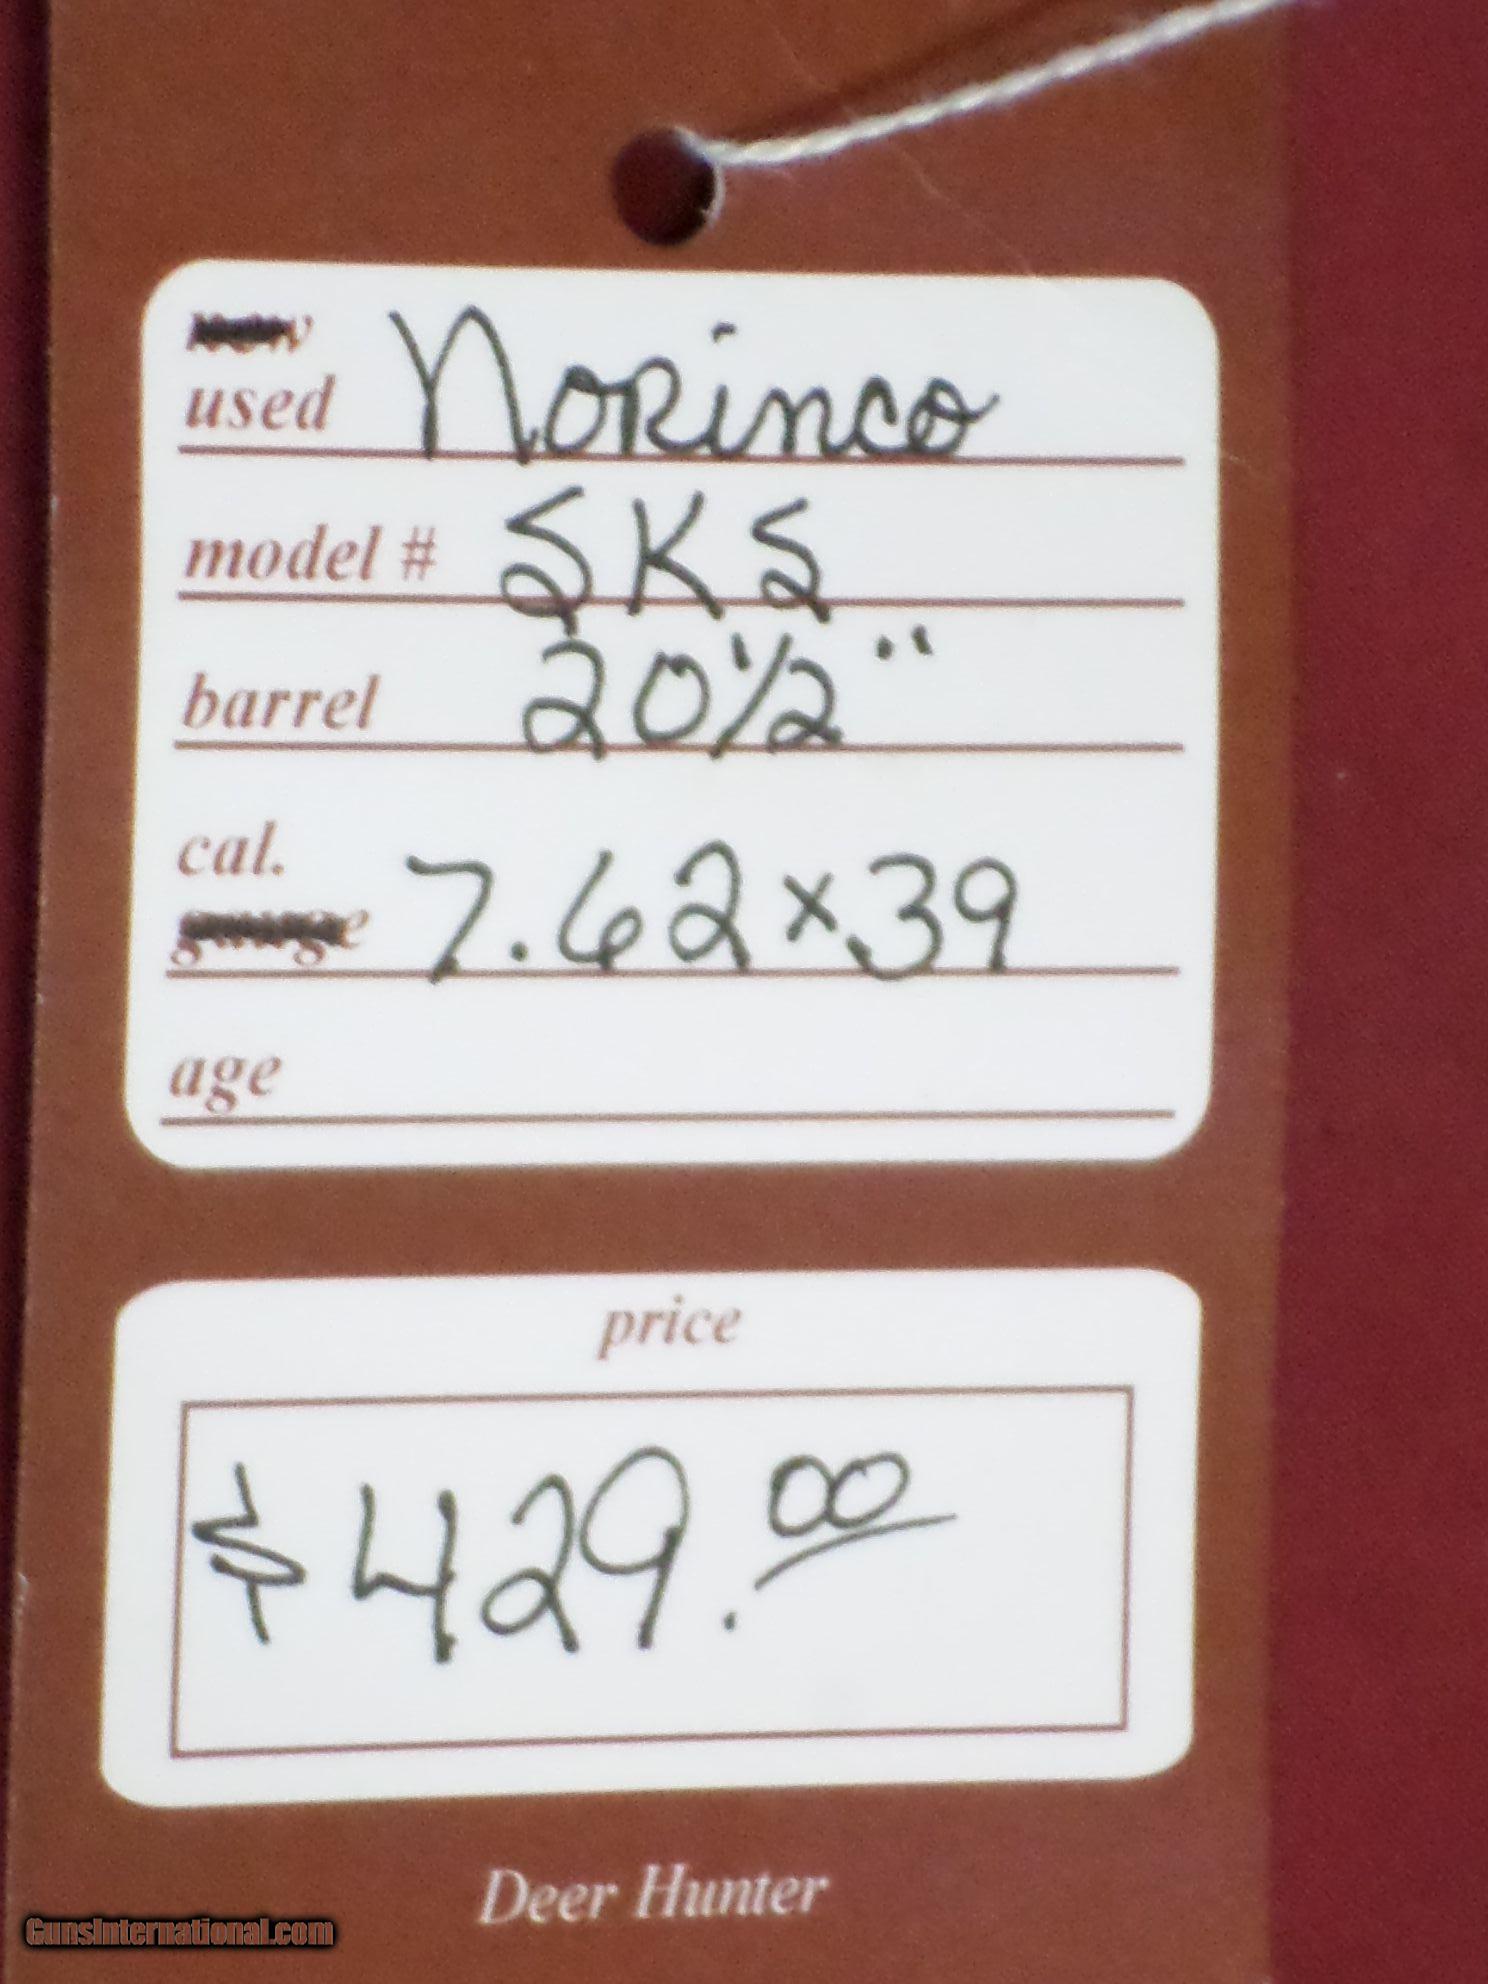 New
used Norinco
model # SKS
barrel 20 1/2"
cal.
gauge 7.62x39
age
price
$429.00
Deer Hunter
GunsInternational.com